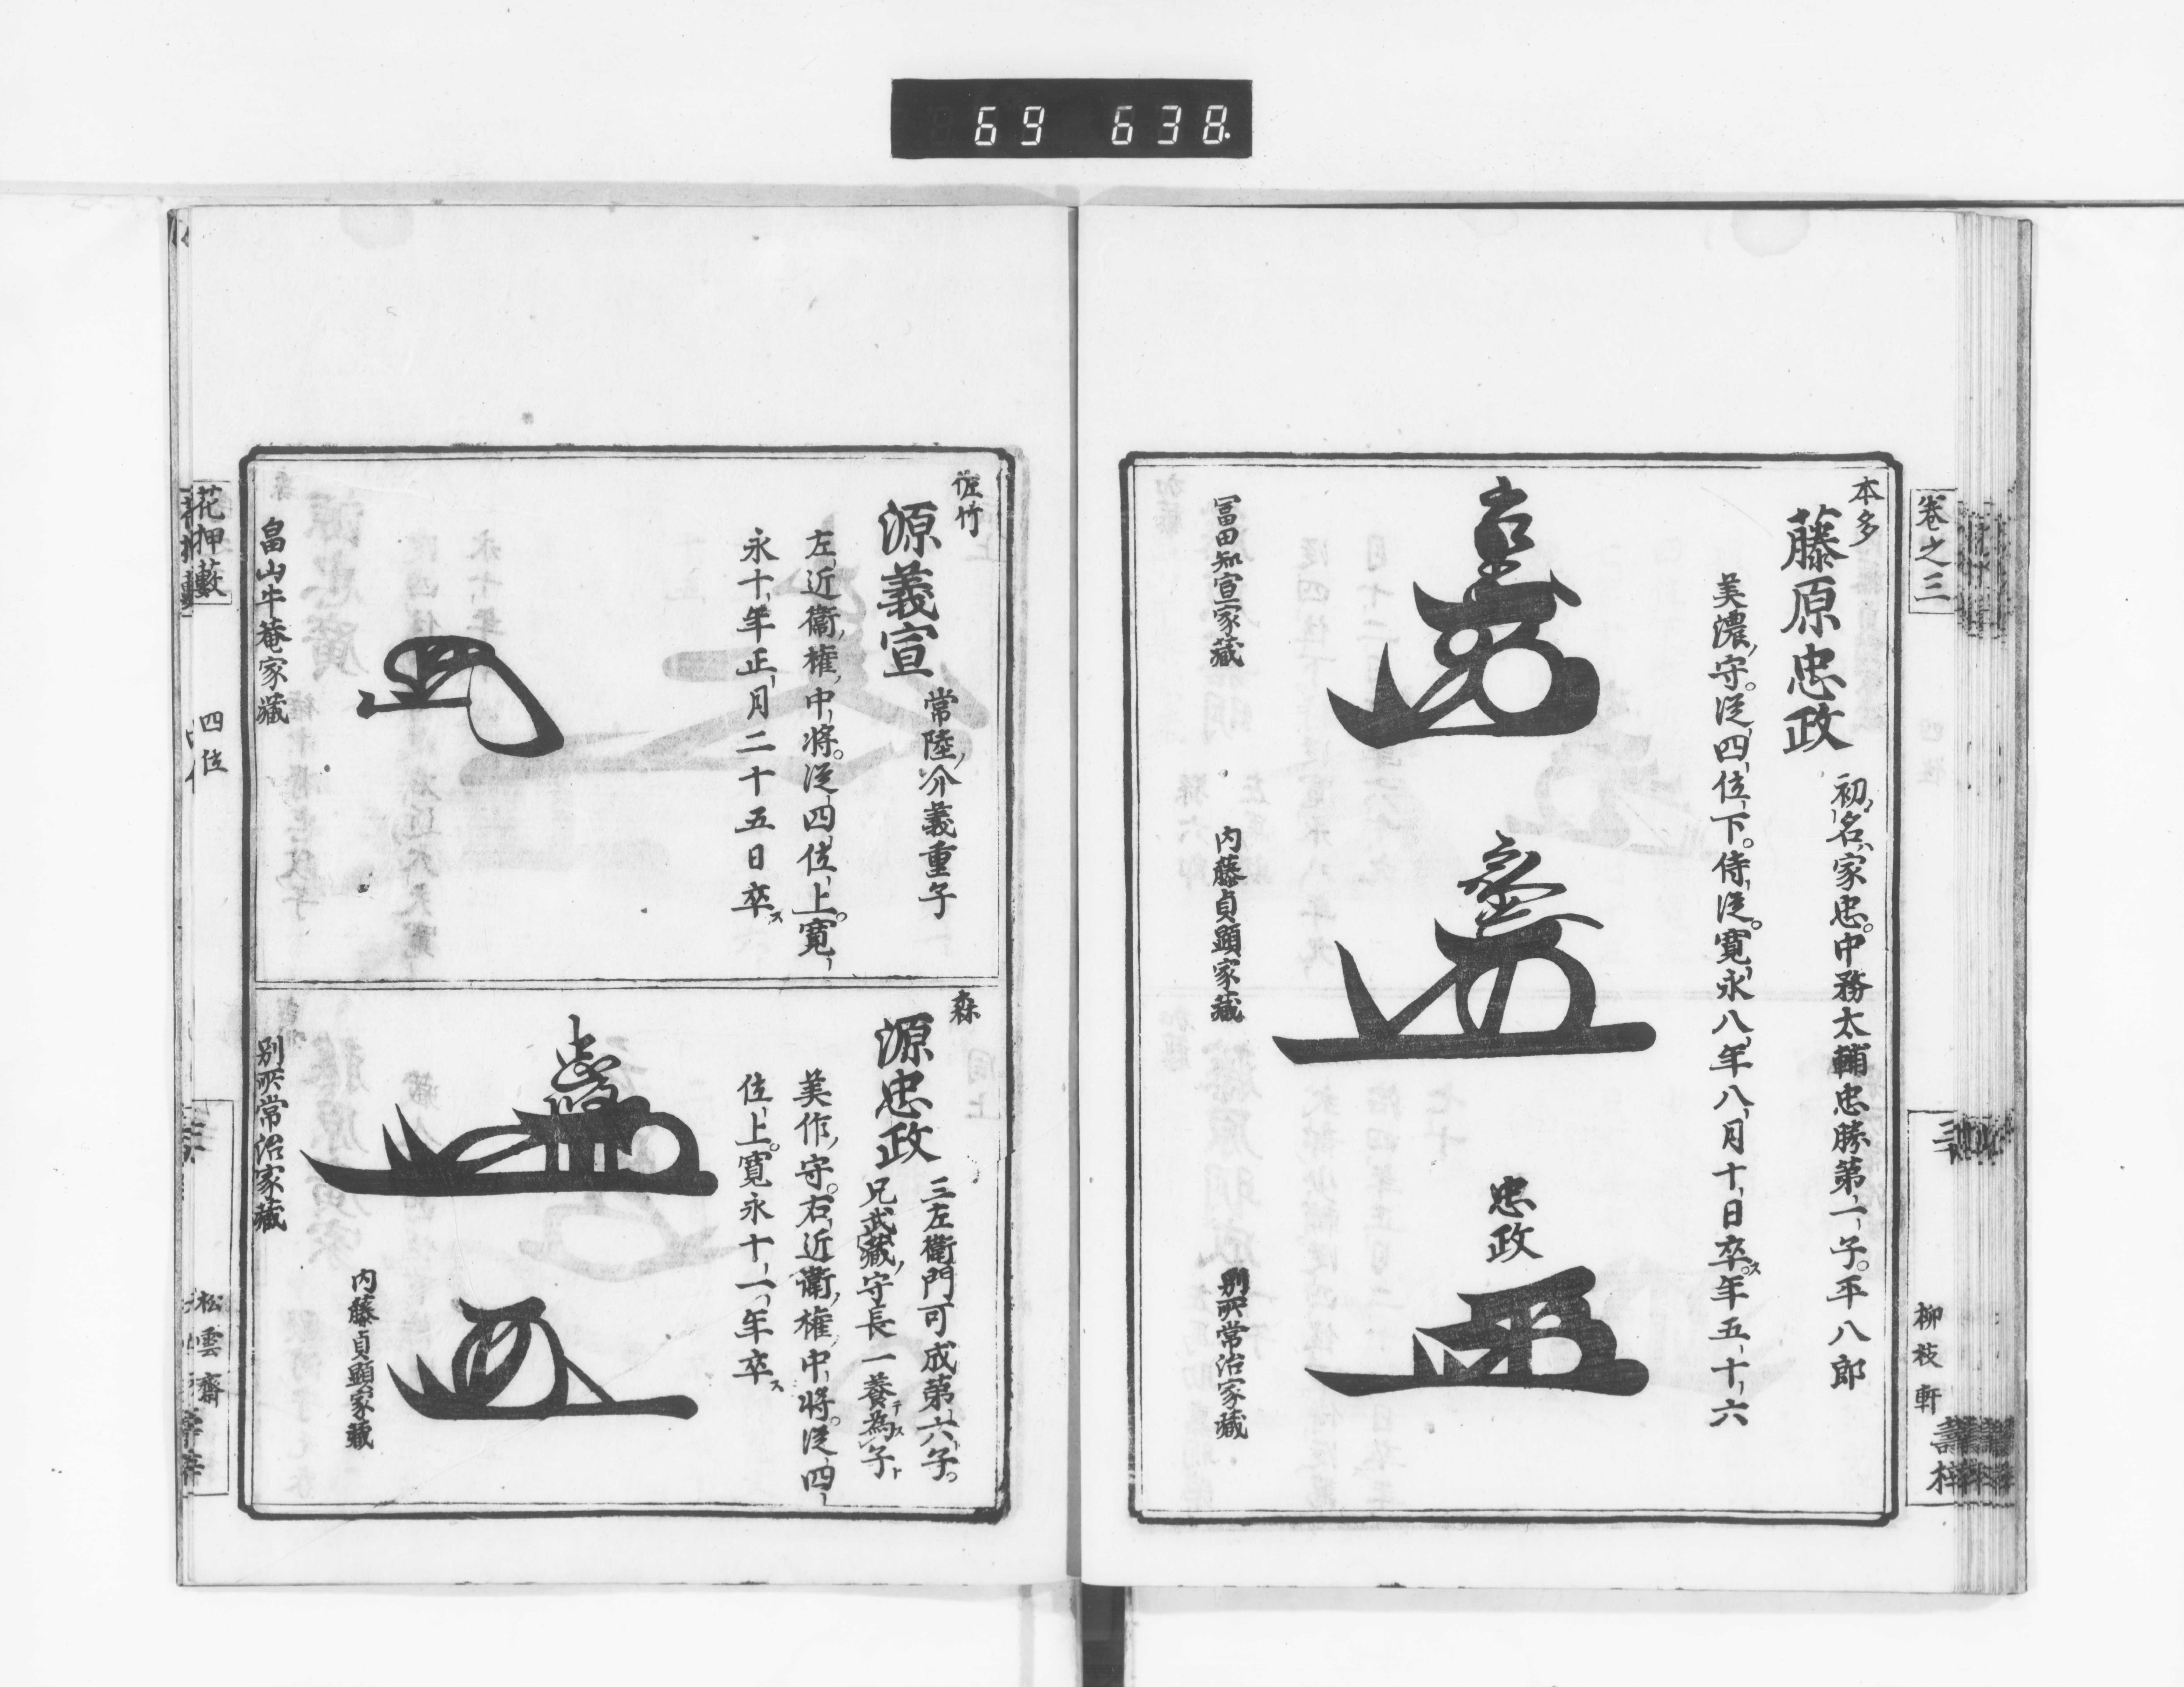 69 638
卷之三
三十
柳枝軒
壽梓
本多
藤原忠政
初名家忠。中務太輔忠勝第一子。平八郎
美濃守。從四位下。侍從。寛永八年八月十日卒ス。年五十六
冨田知宣家藏
内藤貞顕家藏
忠政
別所常治家藏
佐竹
源義宣
常陸介義重子
左近衞權中將。從四位上。寛
永十年正月二十五日卒ス
畠山牛菴家藏
森
源忠政
三左衞門可成第六子。
兄武藏守長一養テ為ス子ト
美作守。右近衞權中將。從四
位上。寛永十一年卒ス
別所常治家藏
内藤貞顕家藏
花押藪
四位
松雲齋